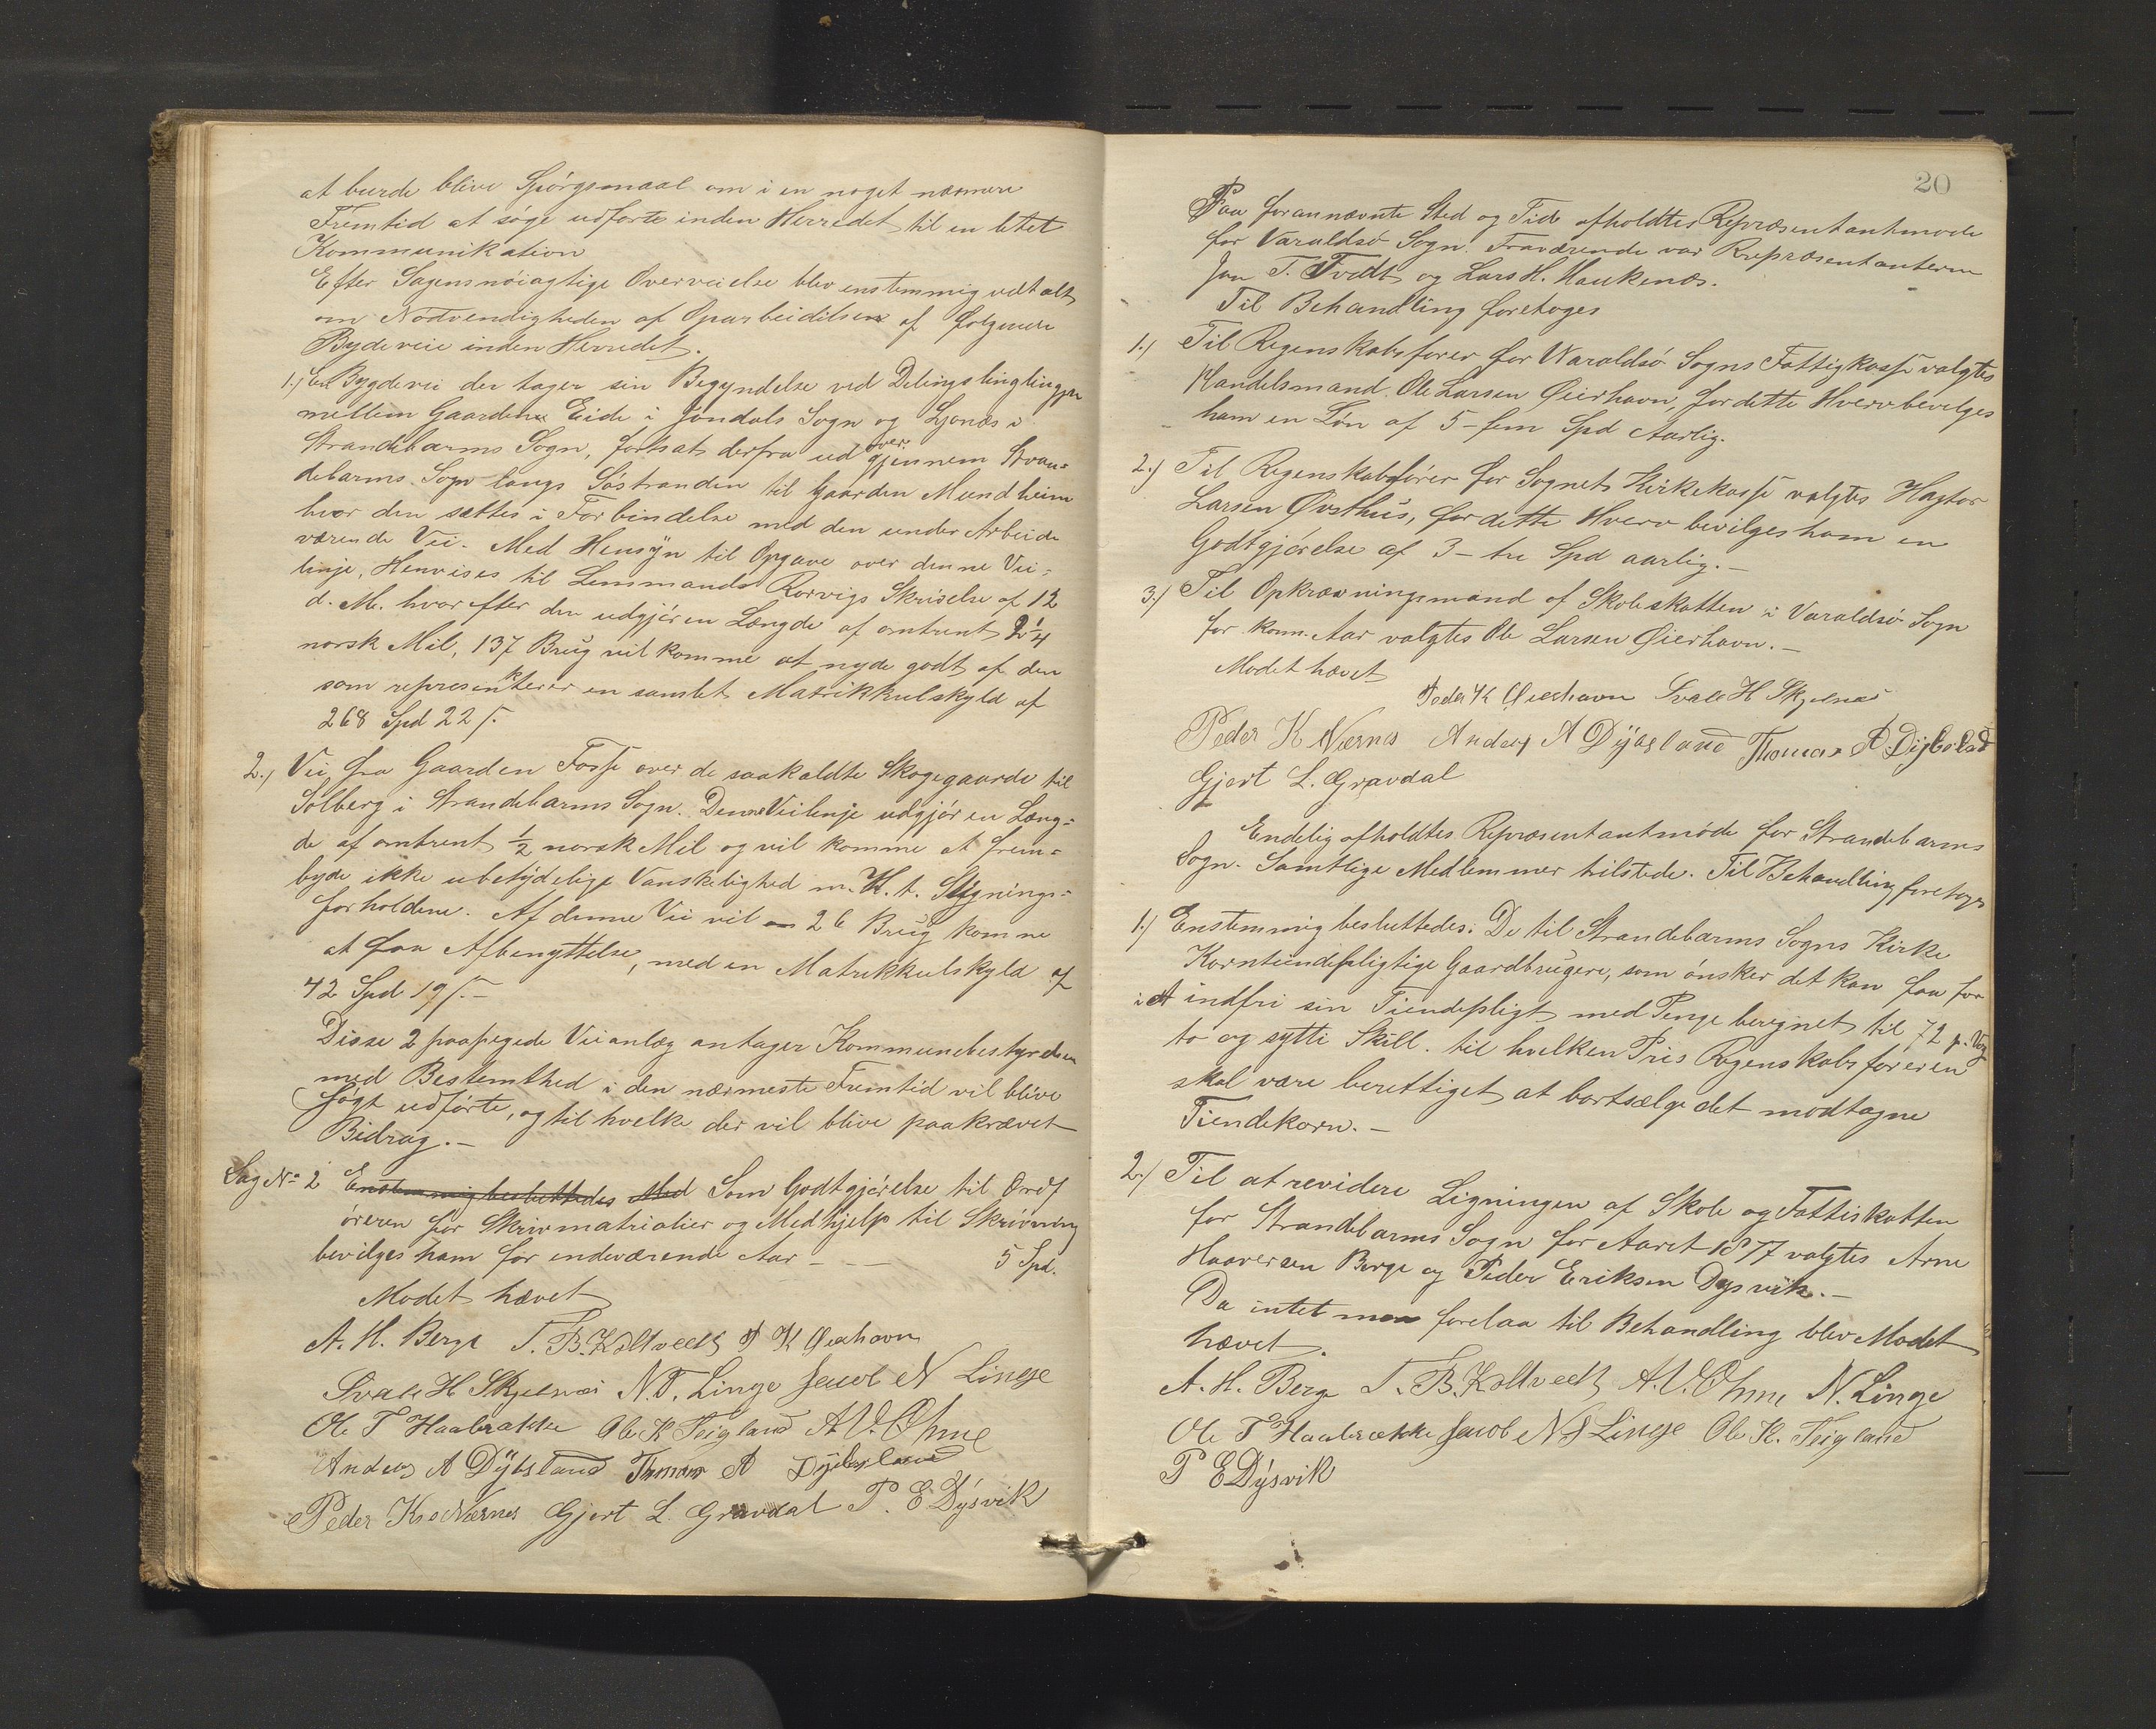 at burde blive Spörgsmaal om i en noget nærmere
Fremtid at söge udförte inden Herredet til en letet
Kommunikation
Efter Sagens nöiagtige Overveielse blev enstemmig udtalt
om Nödvendigheden af Oparbeidelsen af fölgende
Bydeveie inden Herredet.
1./ En Bygdevei der tager sin Begyndelse ved Delings
mellem Gaardene Eide i Jondals Sogn og Ljonæs i
Strandebarms Sogn, fortsat derfra ud over gjennem Stran=
debarms Sogn langs Söstranden til Gaarden Mundheim
hvor den sættes i Forbindelse med den under Arbeide
værende Vei. Med Hensyn til Opgave over denne Vei=
linje, Henvises til Lensmands Rorvigs Skrivelse af 12
d. M. hvorefter den udgjör en Længde af omtrent 2 1/4
norsk Mil, 137 Brug vil komme at nyde godt af den
som representerer en samlet Matrikkulskyld af
268 Spd 22 s.
2./ Vei fra Gaarden Fosse over de saakaldte Skogegaarde til
Solberg i Strandebarms Sogn. Denne Veilinje udgjör en Læng=
de af omtrent 1/2 norsk Mil og vil komme at frem=
byde ikke ubetydelige Vanskelighed m. H. t. Stignings=
forholdene. Af denne Vei vil 26 Brug komme
at faa Afbenyttelse, med en Matrikkulskyld af
42 Spd 19 s.-
Disse 2 paapegede Veianlæg antager Kommunebestyrelsen
med Bestemthed i den nærmeste Fremtid vil blive
sögt udförte, og til hvelke der vil blive paakrævet
Bidrag.-
Sag No 2 Enstemmig besluttedes Med Som Godtgjörelse til Ordf
öreren for Skrivmatrialier og Medhjelp til Skrivning
bevilges ham for endeværende Aar - - - 5 Spd.
Modet hævet
A. H. Berge T. B. Koltvedt P K Øierhavn
Svale H Skjelnæs N. T. Linge Jacob N Linge
Ole T Haabrække Ole K Teigland A V. Ohme
Anders A Dýbsland Thomas A Dýbsland
Peder K. Nernes Gjert L. Gravdal P. E Dýsvik
20
Paa forannævnte Sted og Tid afholdtes Repræsentantmöde
for Varaldsö Sogn. Fraværende var Repræsentanterne
Jon T. Tvedt og Lars H. Haukenæs.
Til Behandling foretoges
1./ Til Regenskabsförer for Waraldsö Sogns Fattigkasse valgtes
Handelsmand Ole Larsen Øierhavn, for dette Hverv bevelges
ham en Løn af 5 - fem Spd Aarlig.
2./ Til Regenskabsförer for Sognets Kirkekasse valgtes Hagtor
Larsen Øvsthus, for dette Hverv bevilges ham en
Godtgjörelse af 3 - tre Spd aarlig.-
3./ Til Opkrævningsmand af Skoleskatten i Varaldsö Sogn
for kom. Aar valgtes Ole Larsen Øierhavn.-
Modet hævet
Peder K Øierhavn Svale H Skjelnæs
Peder K Nernes Anders A Dýbsland Thomas A Dýbsland
Gjert L. Gravdal
Endelig afholdtes Repræsentantmöde for Strandebarms
Sogn. Samtlige Medlemmer tilstede. Til Behandling foretoges
1./ Enstemmig besluttedes: De til Strandebarms Sogns Kirke
Korntiendepligtige Gaardbrugere, som önsker det kan faa for
i A indfri sin Tiendepligt med Penge beregnet til 72 p. Vog
to og sytti Skill. til hvelken Pris Regenskabsföreren
skal være berettiget at bortsælge det modtagne
Tiendekorn.-
2./ Til at revidere Ligningen af Skole og Fattiskatten
for Strandebarms Sogn for Aaret 1877 valgtes Arne
Haaversen Berge og Peder Eriksen Dysvik.-
Da intet mer forelaa til Behandling blev Modet
hævet.
A. H. Berge T. B. Koltvedt A. V. Ohme N. Linge
Ole T Haabrække Jacob N Linge Ole K. Teigland
P E Dýsvik